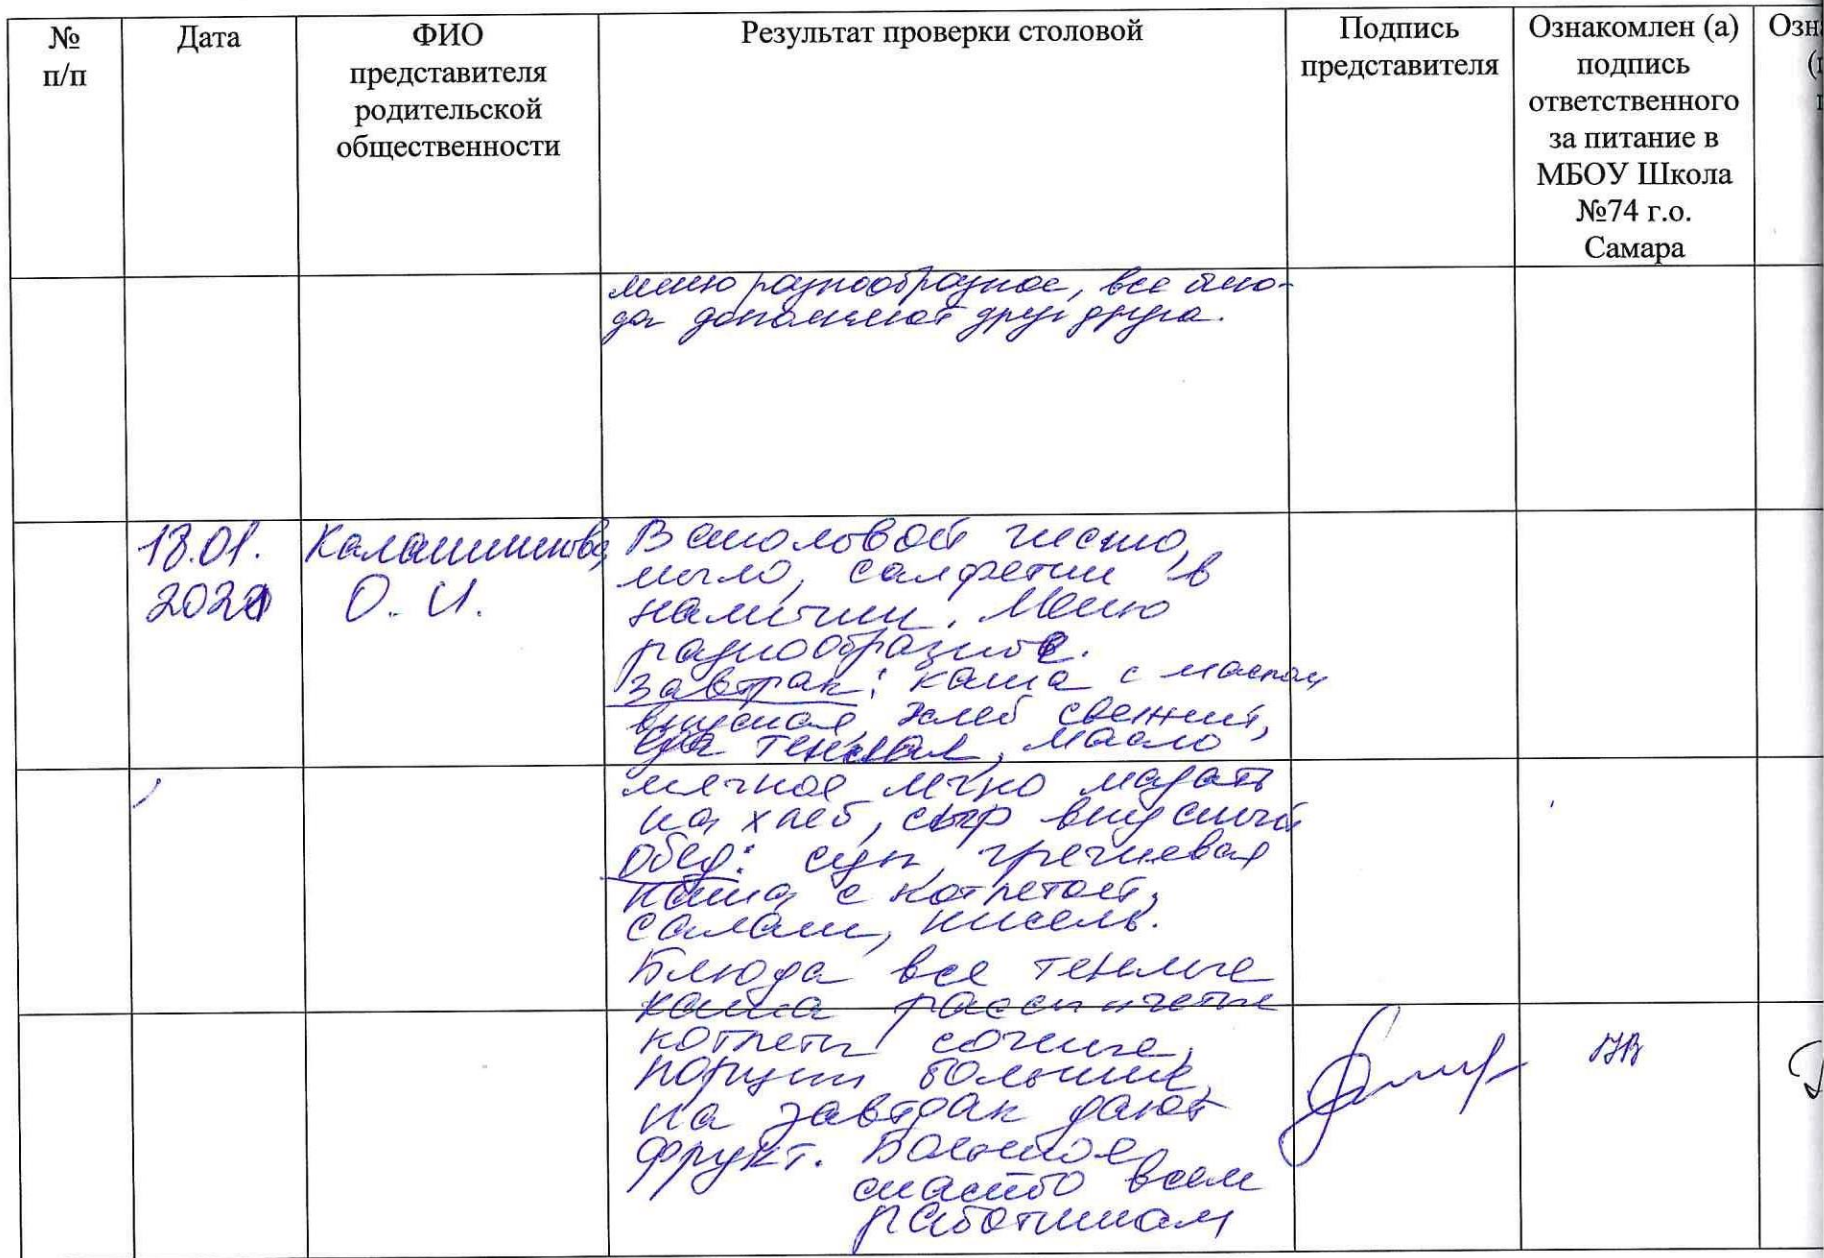 № п/п
Дата
ФИО представителя родительской общественности
Результат проверки столовой
Подпись представителя
Ознакомлен (а) подпись ответственного за питание в МБОУ Школа №74 г.о. Самара
меню разнообразное, все блю-
да дополняют друг друга.
18.01.
Калашникова
О. И.
В столовой чисто,
мыло, салфетки в
наличии. Меню
разнообразное.
Завтрак: каша с маслом
вкусная, хлеб свежий,
еда теплая, масло
мягкое легко мазать
на хлеб, сыр вкусный
Обед: суп, гречневая
каша с котлетой,
салат, кисель.
Блюда все теплые
каша рассыпчатая
котлеты сочные,
порции большие,
на завтрак дают
фрукт. Большое
спасибо всем
работникам